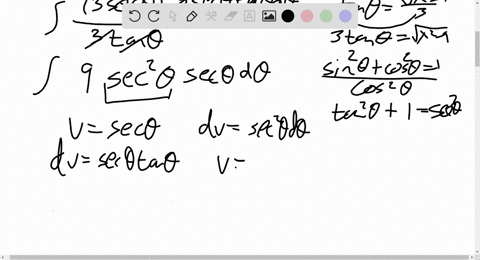 ∫ 3tanθ
tanθ = 3
3tanθ = √x²-9
∫ 9 sec²θ secθ dθ
sin²θ + cos²θ = 1
cos²θ
tan²θ + 1 = sec²θ
v = secθ dv = sec²θdθ
dv = secθtanθ v =